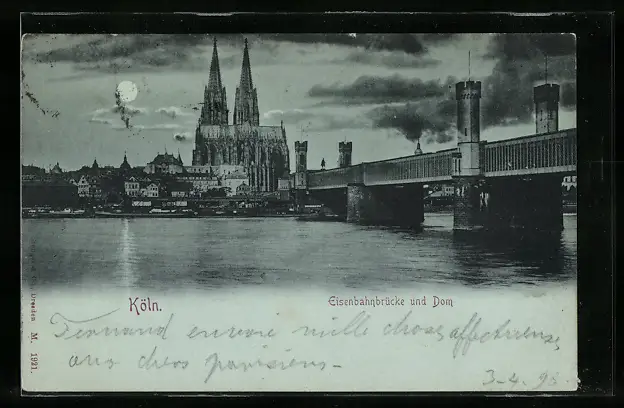 Köln.
Eisenbahnbrücke und Dom
Fernand envoie mille choses affectueuses
aux chers parisiens -
3-4 98
Dresden M. 1921.